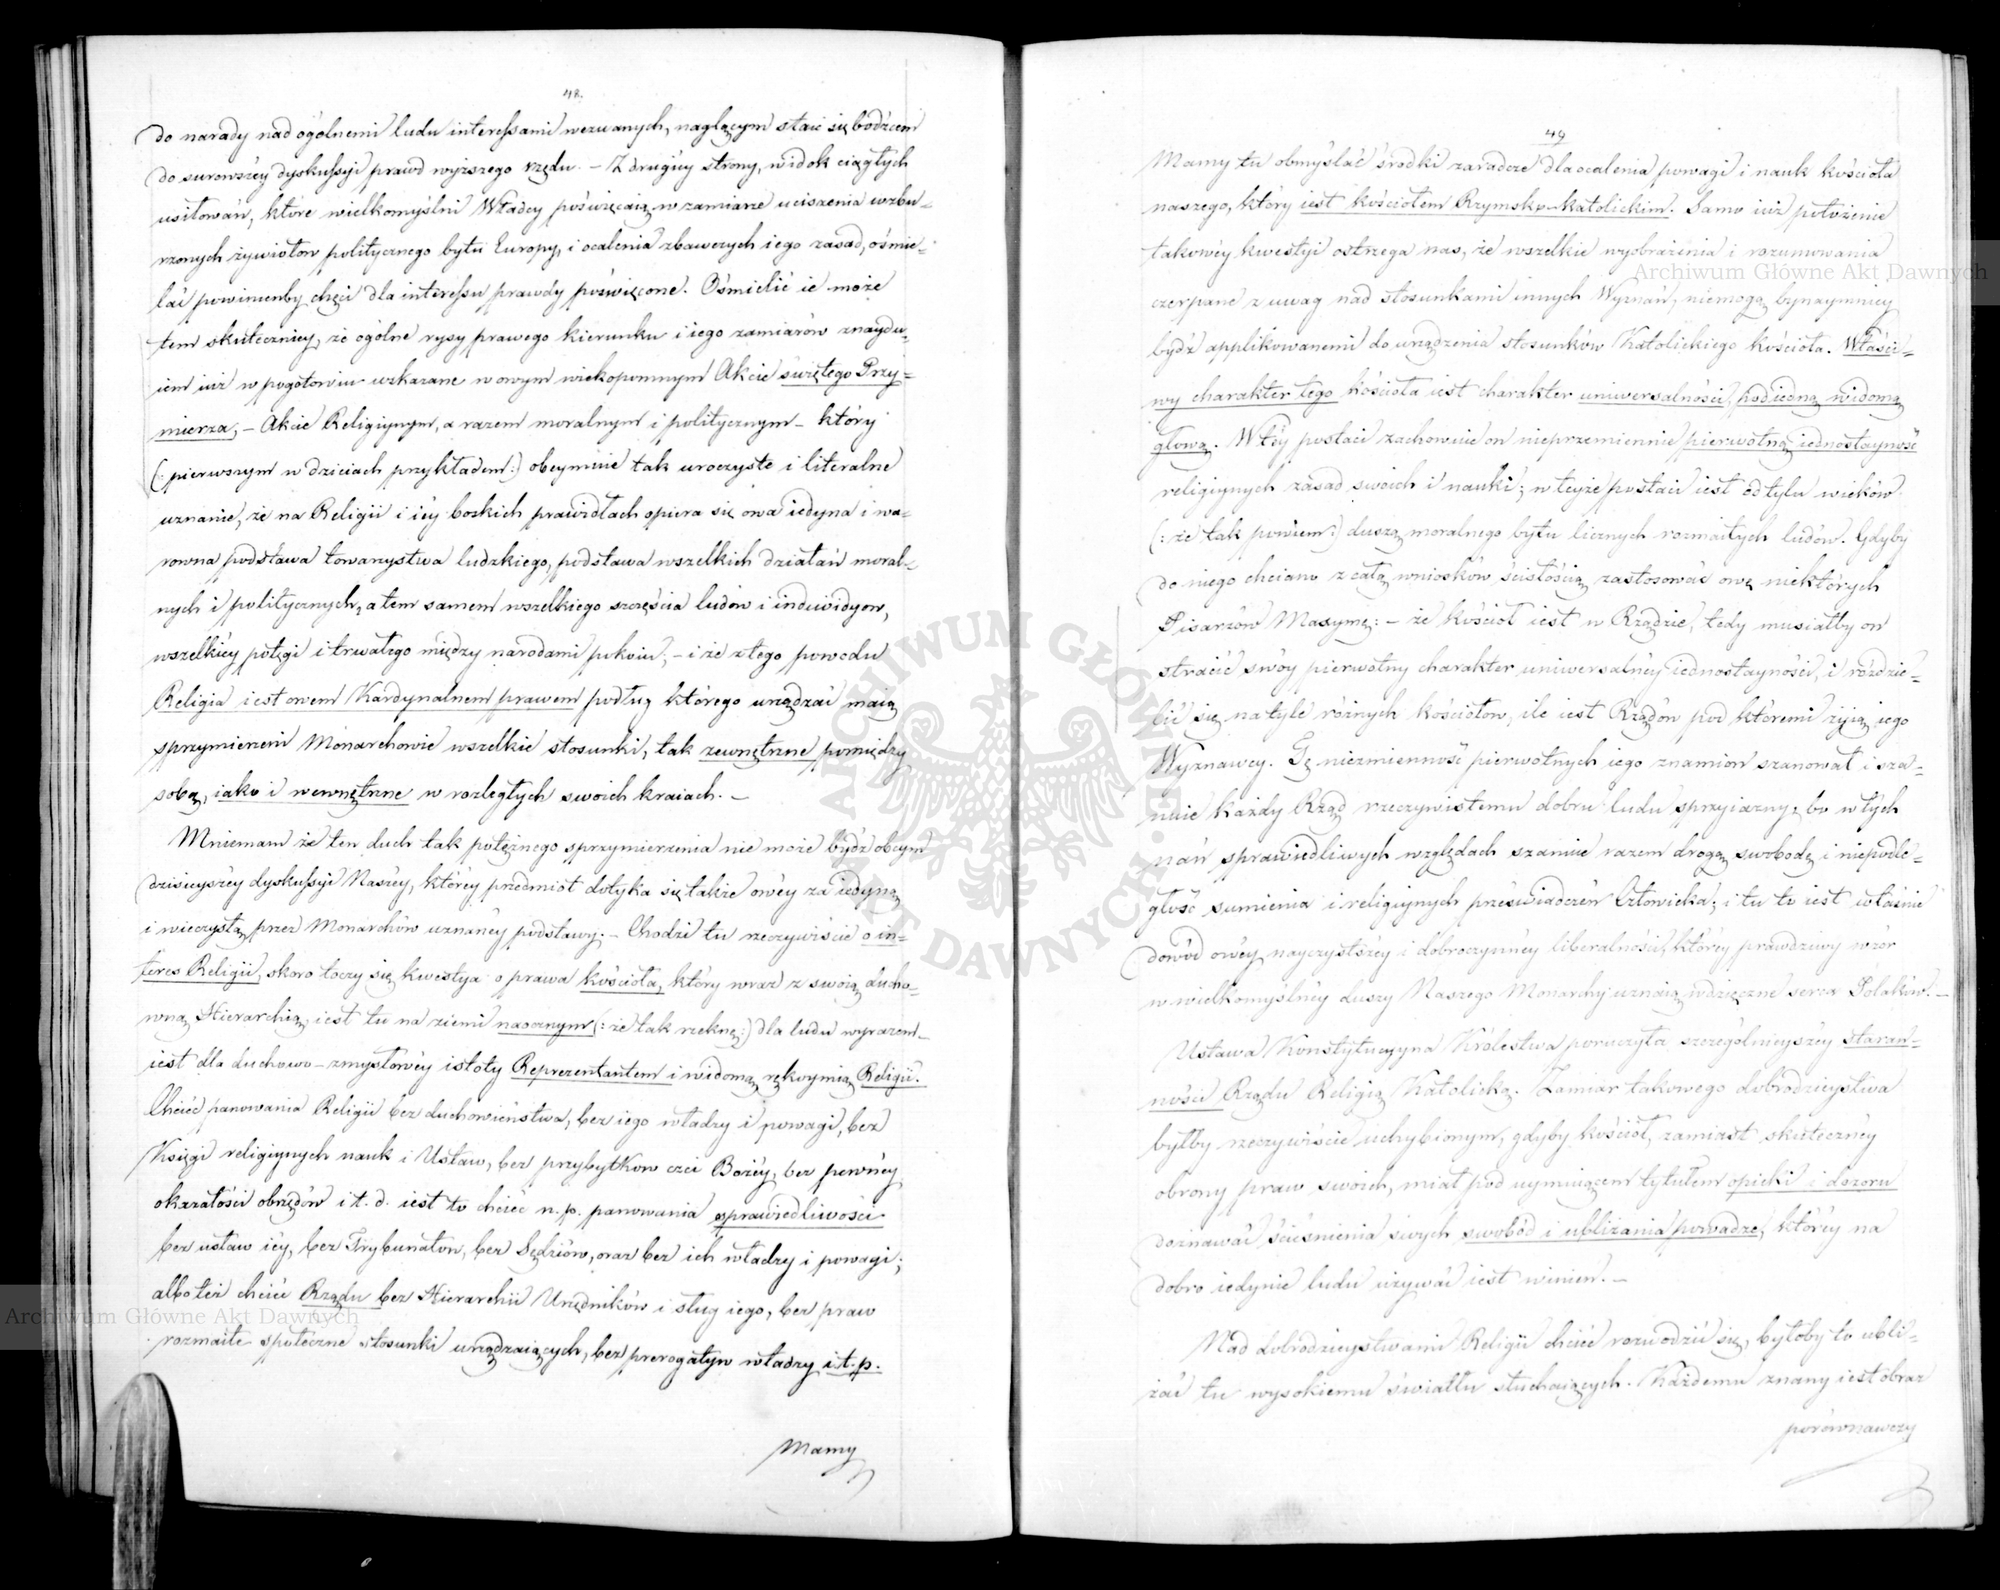 48.
do narady nad ogólnemi ludu interessami wezwanych, naglącym stać się bodźcem
do surowszéy dyskussyi prawd wyższego rzędu. – Z drugiéy strony, widok ciągłych
usiłowań, które wielkomyślni Władcy poświęcaią w zamiarze uciszenia wzbu-
rzonych żywiołów politycznego bytu Europy, i ocalenia zbawczych iego zasad, ośmie-
lać powinienby chęci dla interessu prawdy poświęcone. Ośmielić ie może
tem skuteczniey, że ogólne rysy prawego kierunku i iego zamiarów znaydu-
iem iuż w pogotowiu wskazane w owym wiekopomnym Akcie świętego Przy-
mierza, – Akcie Religiynym, a razem moralnym i politycznym – który
(: pierwszym w dzieiach przykładem :) obeymuie tak uroczyste i literalne
uznanie, że na Religii i iéy boskich prawidłach opiera się owa iedyna i wa-
rowna podstawa towarzystwa ludzkiego, podstawa wszelkich działań moral-
nych i politycznych, a tem samem wszelkiego szczęścia ludów i indiwidyow,
wszelkiéy potęgi i trwałego między narodami pokoiu; – i że z tego powodu
Religia iest owem Kardynalnem prawem podług którego urządzać maią
sprzymierzeni Monarchowie wszelkie stosunki, tak zewnętrzne pomiędzy
sobą, iako i wewnętrzne w rozległych swoich kraiach. –
Mniemam że ten duch tak potężnego sprzymierzenia nie może bydź obcym
dzisieyszéy dyskussyi Naszéy, któréy przedmiot dotyka się także owéy za iedyną
i wieczystą przez Monarchów uznanéy podstawy. – Chodzi tu rzeczywiście o in-
teres Religii, skoro toczy się kwestya o prawa kościoła, który wraz z swoią ducho-
wną Hierarchią, iest tu na ziemi naocznym (: że tak rzeknę :) dla ludu wyrazem –
iest dla duchowo – zmysłowéy istoty Reprezentantem i widomą rękoymią Religii.
Chcieć panowania Religii bez duchowieństwa, bez iego władzy i powagi, bez
Księgi religiynych nauk i Ustaw, bez przybytkow czci Bożéy, bez pewnéy
okazałości obrzędów i t. d. iest to chcieć n. p. panowania sprawiedliwości
bez ustaw iéy, bez Trybunałow, bez Sędziów, oraz bez ich władzy i powagi;
albo też chcieć Rządu bez Hierarchii Urzędników i sług iego, bez praw
rozmaite społeczne stosunki urządzaiących, bez prerogatyw władzy i t. p.
Mamy
49
Mamy tu obmyślać środki zaradcze dla ocalenia powagi i nauk kościoła
naszego, który iest kościołem Rzymsko-katolickim. Samo iuż położenie
takowéy kwestyi ostrzega nas, że wszelkie wyobrażenia i rozumowania
czerpane z uwag nad stosunkami innych Wyznań, niemogą bynaymniey
bydź applikowanemi do urządzenia stosunków Katolickiego kościoła. Właści-
wy charakter tego kościoła iest charakter uniwersalności, pod iedną widomą
głową. W téy postaci zachowuie on nieprzemiennie pierwotną iednostayność
religiynych zasad swoich i nauki; w teyże postaci iest od tylu wieków
(: że tak powiem :) duszą moralnego bytu licznych rozmaitych ludów. Gdyby
do niego chciano z całą wniosków ścisłością zastosować owę niektórych
Pisarzów Maxymę: – że kościół iest w Rządzie, tedy musiałby on
stracić swóy pierwotny charakter uniwersalnéy iednostayności, i rozdzie-
lić się na tyle różnych kościołów, ile iest Rządów pod któremi żyią iego
Wyznawcy. Tę niezmienność pierwotnych iego znamion szanował i sza-
nuie każdy Rząd rzeczywistemu dobru ludu sprzyiazny; bo w tych
nań sprawiedliwych względach szanuie razem drogą swobodę i niepodle-
głość sumienia i religiynych przeświadczeń Człowieka; i tu to iest właśnie
dowód owéy nayczystszéy i dobroczynnéy liberalności, któréy prawdziwy wzór
w wielkomyślnéy duszy Naszego Monarchy uznaią wdzięczne serca Polaków. –
Ustawa Konstytucyyna Królestwa poruczyła szczególnieyszéy staran-
ności Rządu Religią Katolicką. Zamiar takowego dobrodzieystwa
byłby rzeczywiście uchybionym, gdyby kościół, zamiast skutecznéy
obrony praw swoich, miał pod uymuiącem tytułem opieki i dozoru
doznawać ścieśnienia swych swobód i ubliżania powadze, któréy na
dobro iedynie ludu używać iest winien. –
Nad dobrodzieystwami Religii chcieć rozwodzić się, byłoby to ubli-
żać tu wysokiemu światłu słuchaiących. Każdemu znany iest obraz
porównawczy
Archiwum Główne Akt Dawnych
Archiwum Główne Akt Dawnych
ARCHIWUM GŁÓWNE AKT DAWNYCH